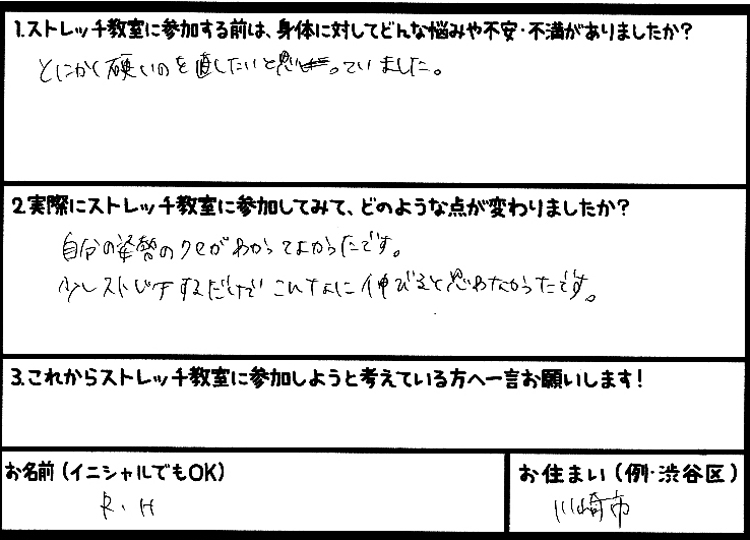 1.ストレッチ教室に参加する前は、身体に対してどんな悩みや不安・不満がありましたか?
とにかく硬いのを直したいと思っていました。
2.実際にストレッチ教室に参加してみて、どのような点が変わりましたか?
自分の姿勢のクセがわかってよかったです。
少しストレッチするだけでこんなに伸びると思わなかったです。
3.これからストレッチ教室に参加しようと考えている方へ一言お願いします!
お名前(イニシャルでもOK)
お住まい(例・渋谷区)
R.H
川崎市